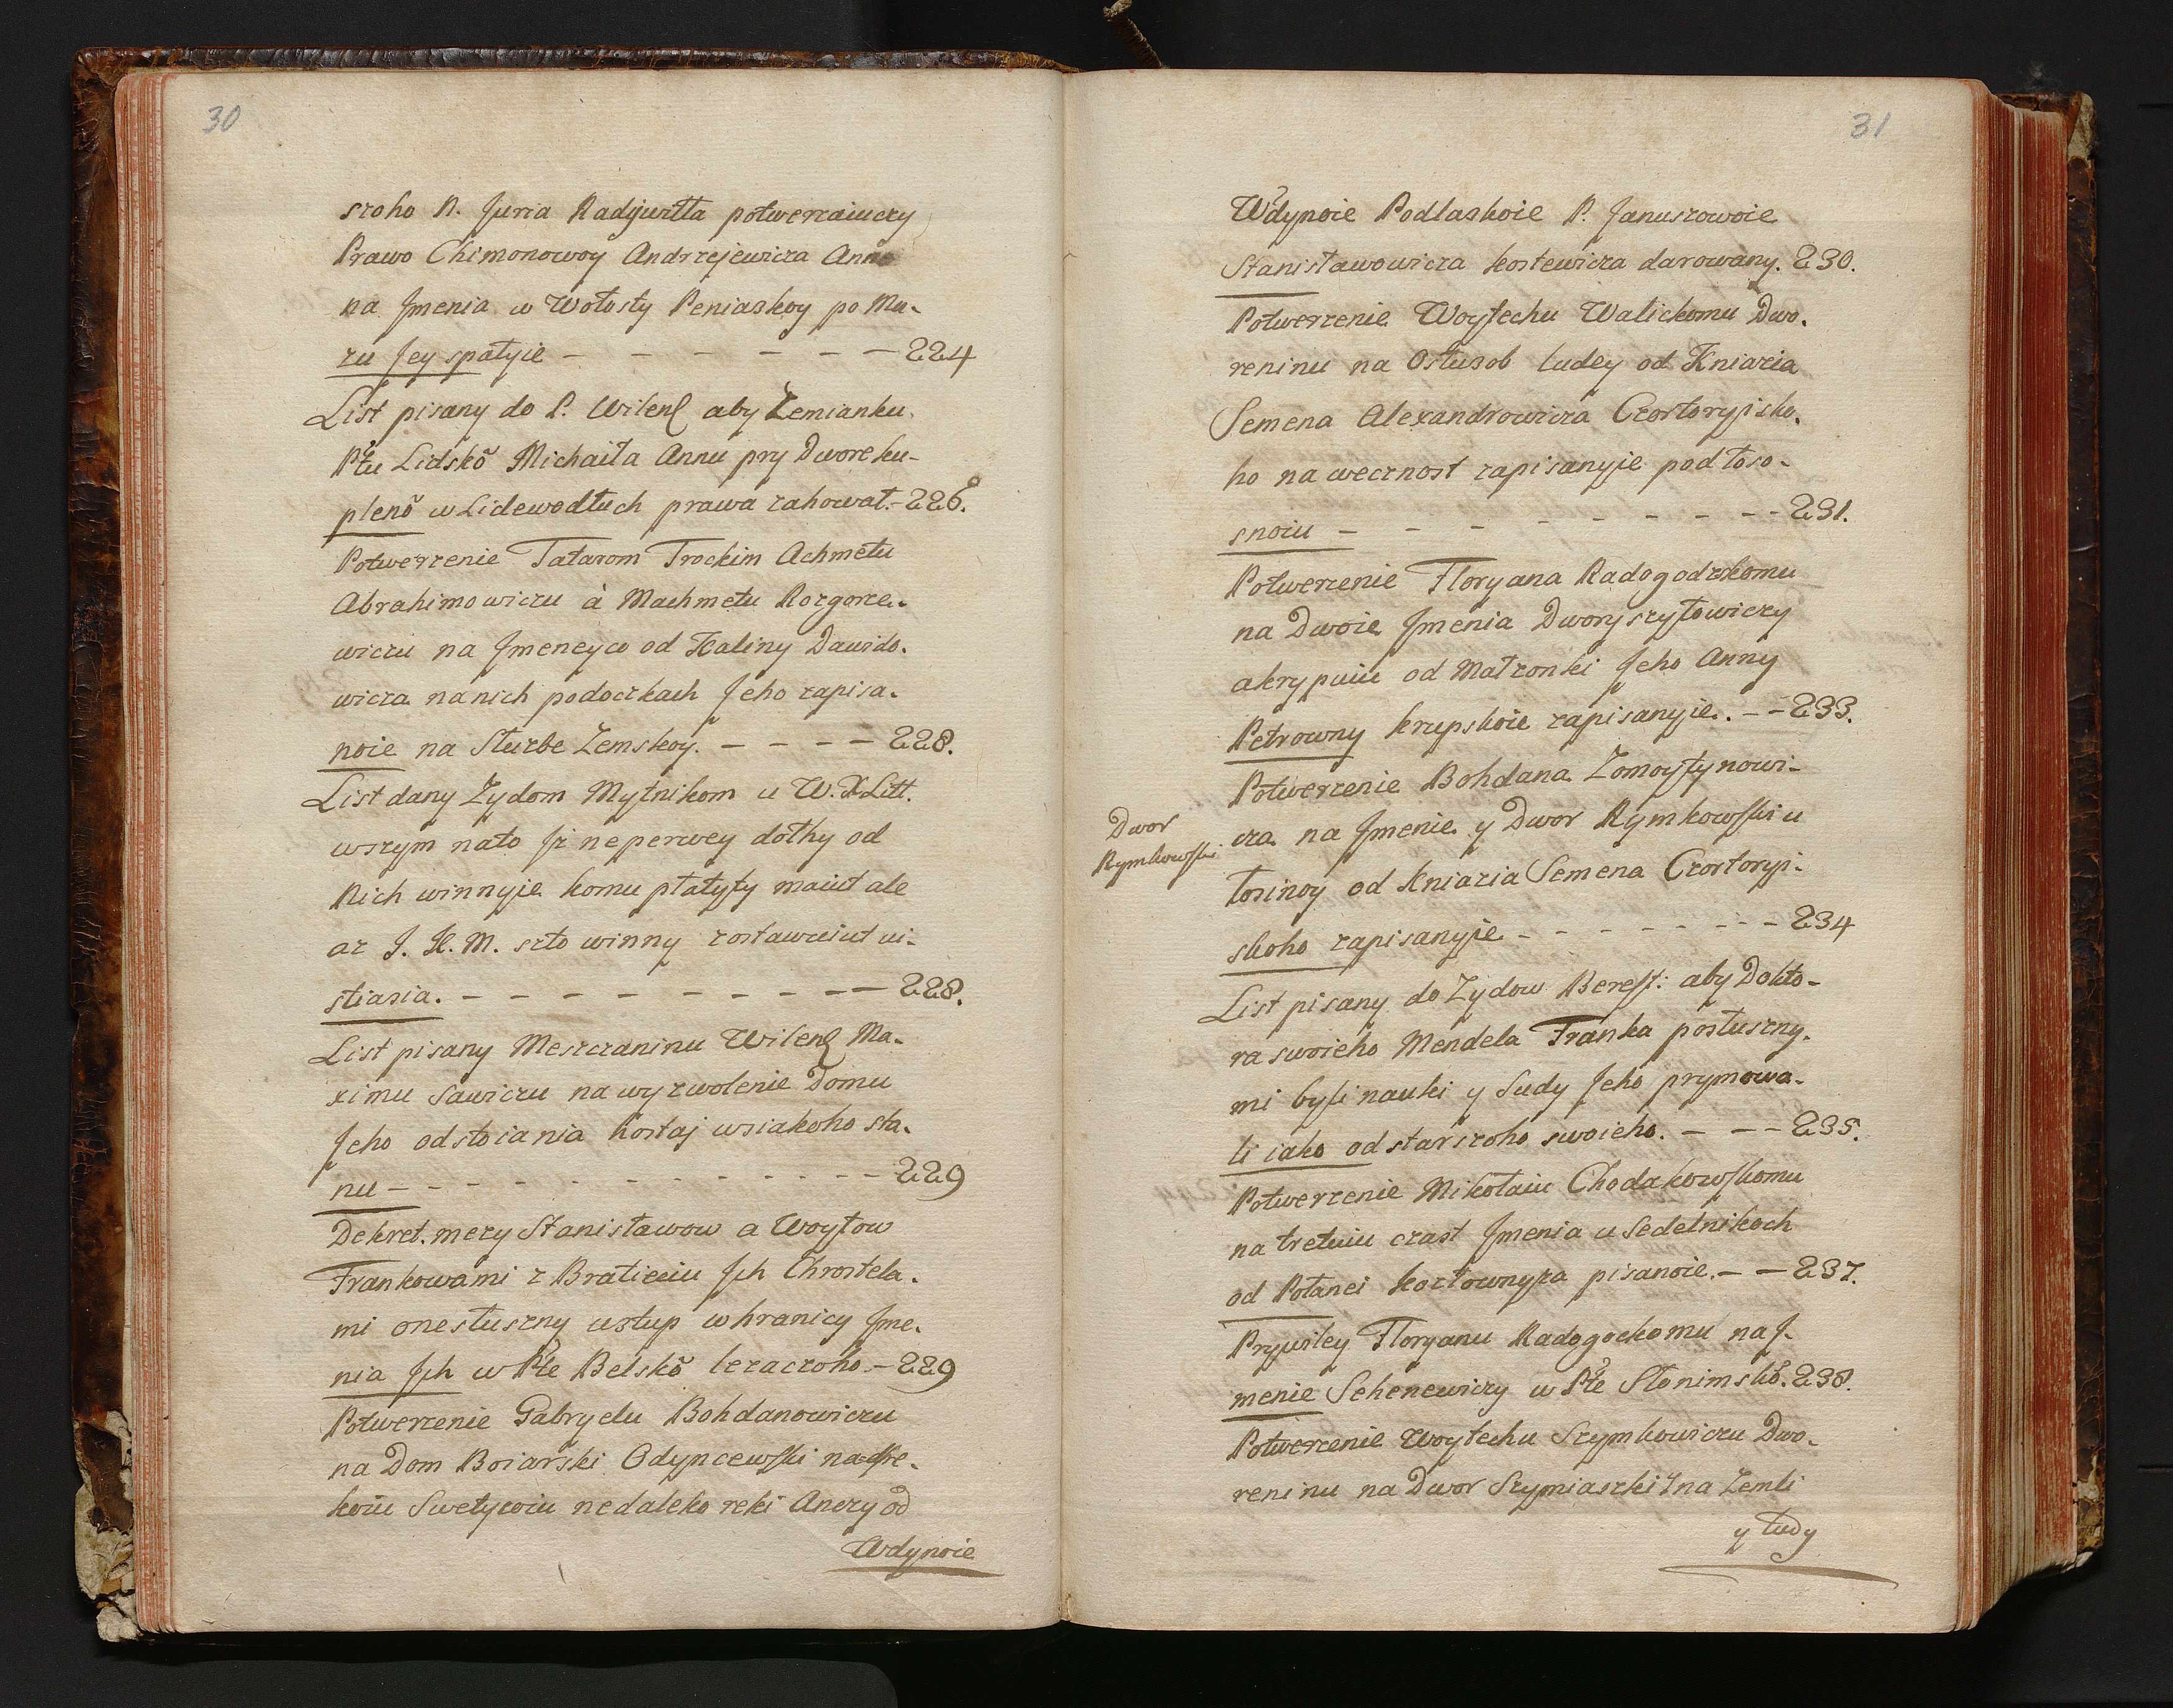 30
szoho P. Juria Radijwiłła potwerzaiuczy
Prawo Chimonowoy Andrzejewicza Anne
na Jmenia w Wołosty Peniaskoy po Mu-
zu Jey spałyie — — — — — — — 224
List pisany do P. Wilenſ aby Zemianku
Płu Lidskő Michaiła Annu pry Dworeku-
plenő w Lidewodłuch prawa zahowat. - 226.
Potwerzenie Tatarom Trockim Achmetu
Abrahimowiczu à Machmetu Rozgorze-
wiczu na Jmeneyco od Haliny Dawido-
wicza nanich podoczkach Jeho zapisa-
noie na Służbe Zemskoy. — — — — 228.
List dany Zydom Mytnikom u W. X Litt.
wszym nato Jż neperwey dołhy od
Nich winnyie komu płatyty maiut ale
az J. K. M. szto winny zostawuiut ui-
stiasia. — — — — — — — — — 228.
List pisany Meszczaninu Wilenſ Ma-
ximu Sawiczu na wyzwolenie Domu
Jeho odstoiania hostaj wsiakoho sta-
nu — — — — — — — — — — 229
Dekret. mezy Stanisławow a Woytow
Frankowami z Bratieiu Jch Chrostela-
mi onesłuszny wstup whranicy Jme-
nia Jch w Płe Belskő lezaczoho. - 229
Potwerzenie Gabryelu Bohdanowiczu
na Dom Boiarski Odyncewſki nad Re-
koiu Swetycoiu nedaleko reki Anczy od
Wdynoie
31
Wdynoie Podlaskoie P. Januszowoie
Stanisławowicza kostewicza darowany. 230.
Potwerzenie Woytechu Walickomu Dwo-
reninu na Osłusob ludey od Kniazia
Semena Alexandrowicza Czortoryisko-
ho na wecznost zapisanyie pod łoso-
snoiu — — — — — — — — — 231.
Potwerzenie Floryana Radogodzkomu
na Dwoie Jmenia Dworyszytowiczy
akrypuiu od Małzonki Jeho Anny
Petrowny krupskoie zapisanyie. - - 233.
Potwerzenie Bohdana Zomoytynowi-
Dwor
Rymkowſki
cza na Jmenie y Dwor Rymkowſki u
łosinoy od Kniazia Semena Czortoryi-
skoho zapisanyie — — — — — — — 234
List pisany do Zydow Bereſt: aby Dokto-
ra swoieho Mendela Franka posłuszny-
mi byli nauki y Sudy Jeho prymowa-
li iako od starszoho swoieho. — — — 235.
Potwerzenie Mikołaiu Chodakowſkomu
na tretuiu czast Jmenia u Sedelnikach
od Połanei kozłownyza pisanoie. — — 237.
Prywiley Floryanu Radogockomu na J-
menie Sehenewiczy w Płe Słonimskő. 238.
Potwerzenie Woytechu Szymkowiczu Dwo-
reninu na Dwor Szymiaszki J na Zemli
y ludy